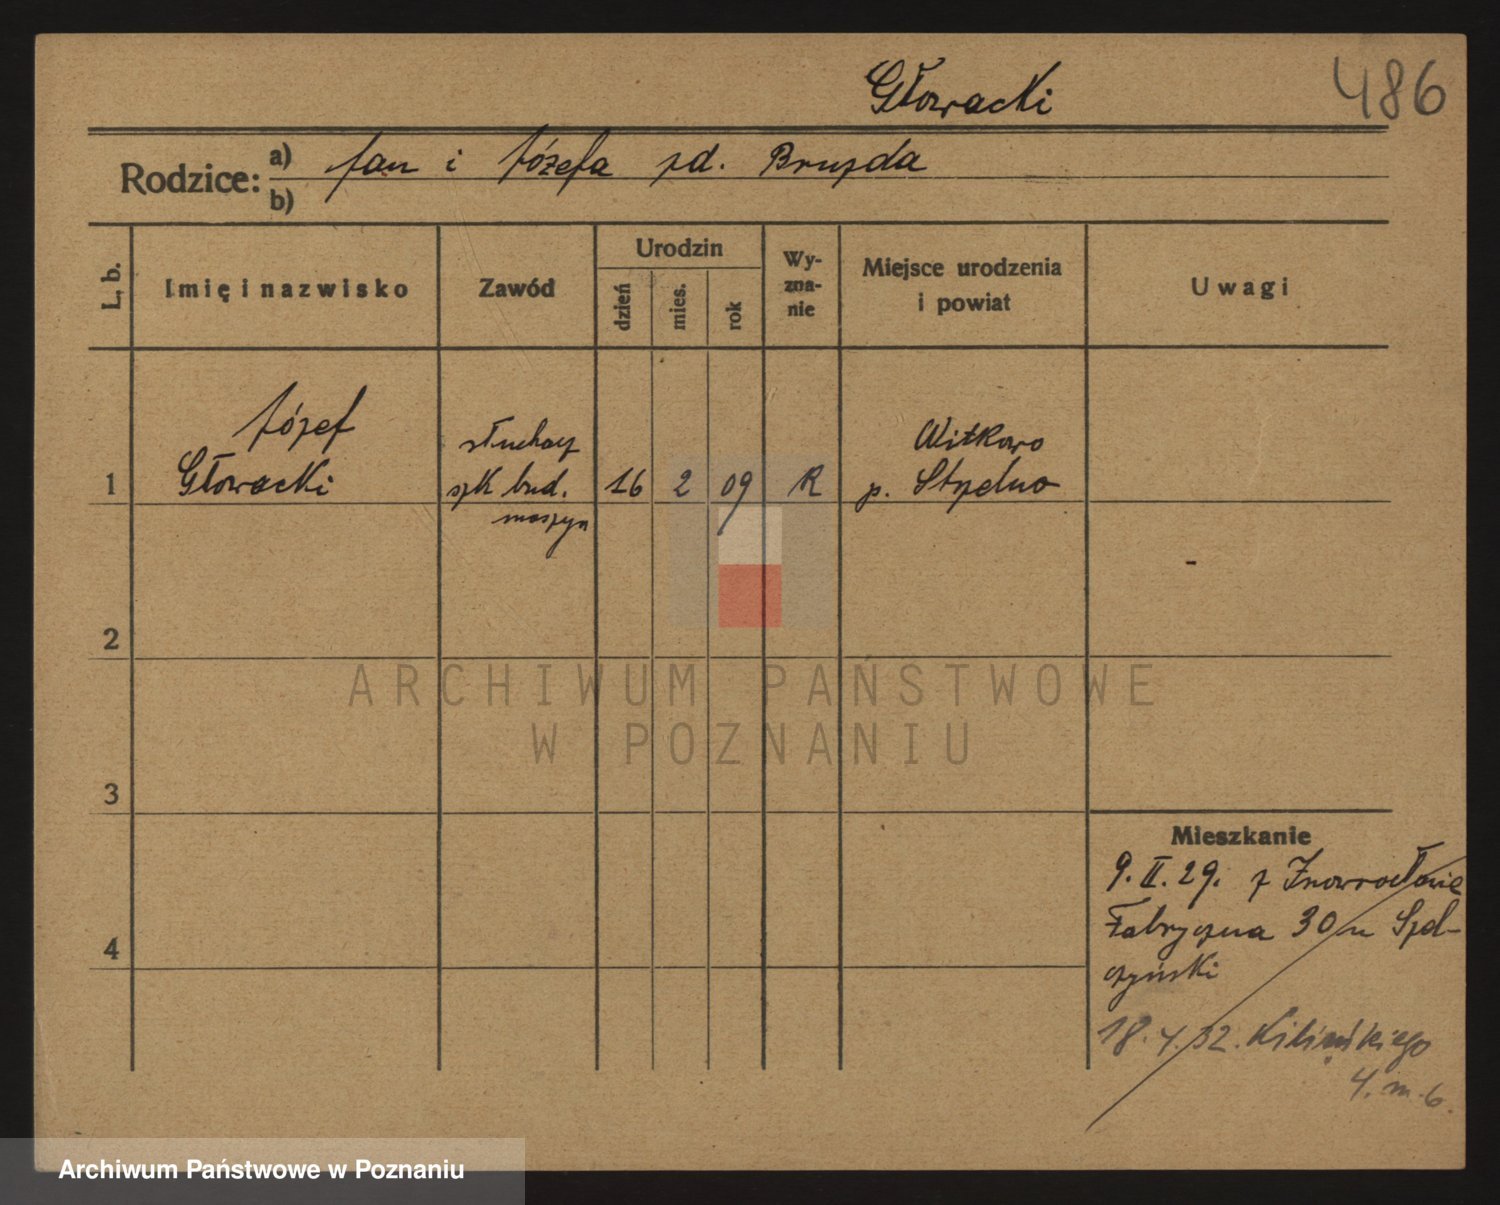 Głowacki
486
Rodzice: a) Jan i Józefa zd. Bruzda
b)
L. b.
Imię i nazwisko
Zawód
Urodzin
dzień
mies.
rok
Wy-
zna-
nie
Miejsce urodzenia
i powiat
Uwagi
Józef
Głowacki
słuchacz
szk bud.
maszyn
1
16 2 09 R
Witkowo
p. Strzelno
2
3
4
Mieszkanie
9. II. 29. z Inowrocławia
Fabryczna 30 u
18. 4. 32. Kilińskiego
4. m. 6.
ARCHIWUM PAŃSTWOWE
W POZNANIU
Archiwum Państwowe w Poznaniu